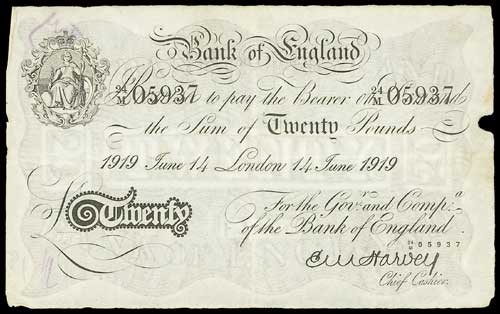 Bank of England
24/M 05937 to pay the Bearer on Demand 24/M 05937
the Sum of Twenty Pounds
1919 June 14 London 14 June 1919
For the Govr. and Compa.
£ Twenty of the Bank of England.
24/M 05937
E M Harvey
Chief Cashier.